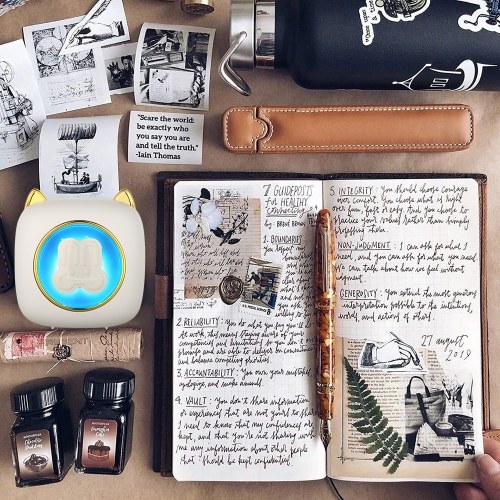 "Scare the world:
be exactly who
you say you are
and tell the truth."
-Iain Thomas
7 GUIDEPOSTS
for HEALTHY
connecting
by: BRENÉ BROWN
1. BOUNDARIES
You respect my
2. RELIABILITY: You do what you say you'll do.
At work, this means staying aware of your
competencies and limitations so you don't over
promise and are able to deliver on commitments
and balance competing priorities.
3. ACCOUNTABILITY: You own your mistakes,
apologize, and make amends.
4. VAULT: You don't share information
or experiences that are not yours to share.
I need to know that my confidences are
kept, and that you're not sharing with
me any information about other people
that should be kept confidential.
5. INTEGRITY: You should choose courage
over comfort. You choose what is right
over fun, fast or easy. And you choose to
practice your values rather than simply
professing them.
NON-JUDGMENT: I can ask for what I
need, and you can ask for what you need.
We can talk about how we feel without
judgment.
GENEROSITY: You extend the most generous
interpretation possible to the intentions,
words, and actions of others.
27 august
2019